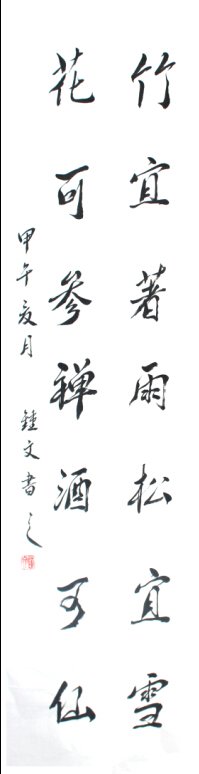 竹宜著雨松宜雪
花可参禅酒可仙
甲午夏月 鍾文書之